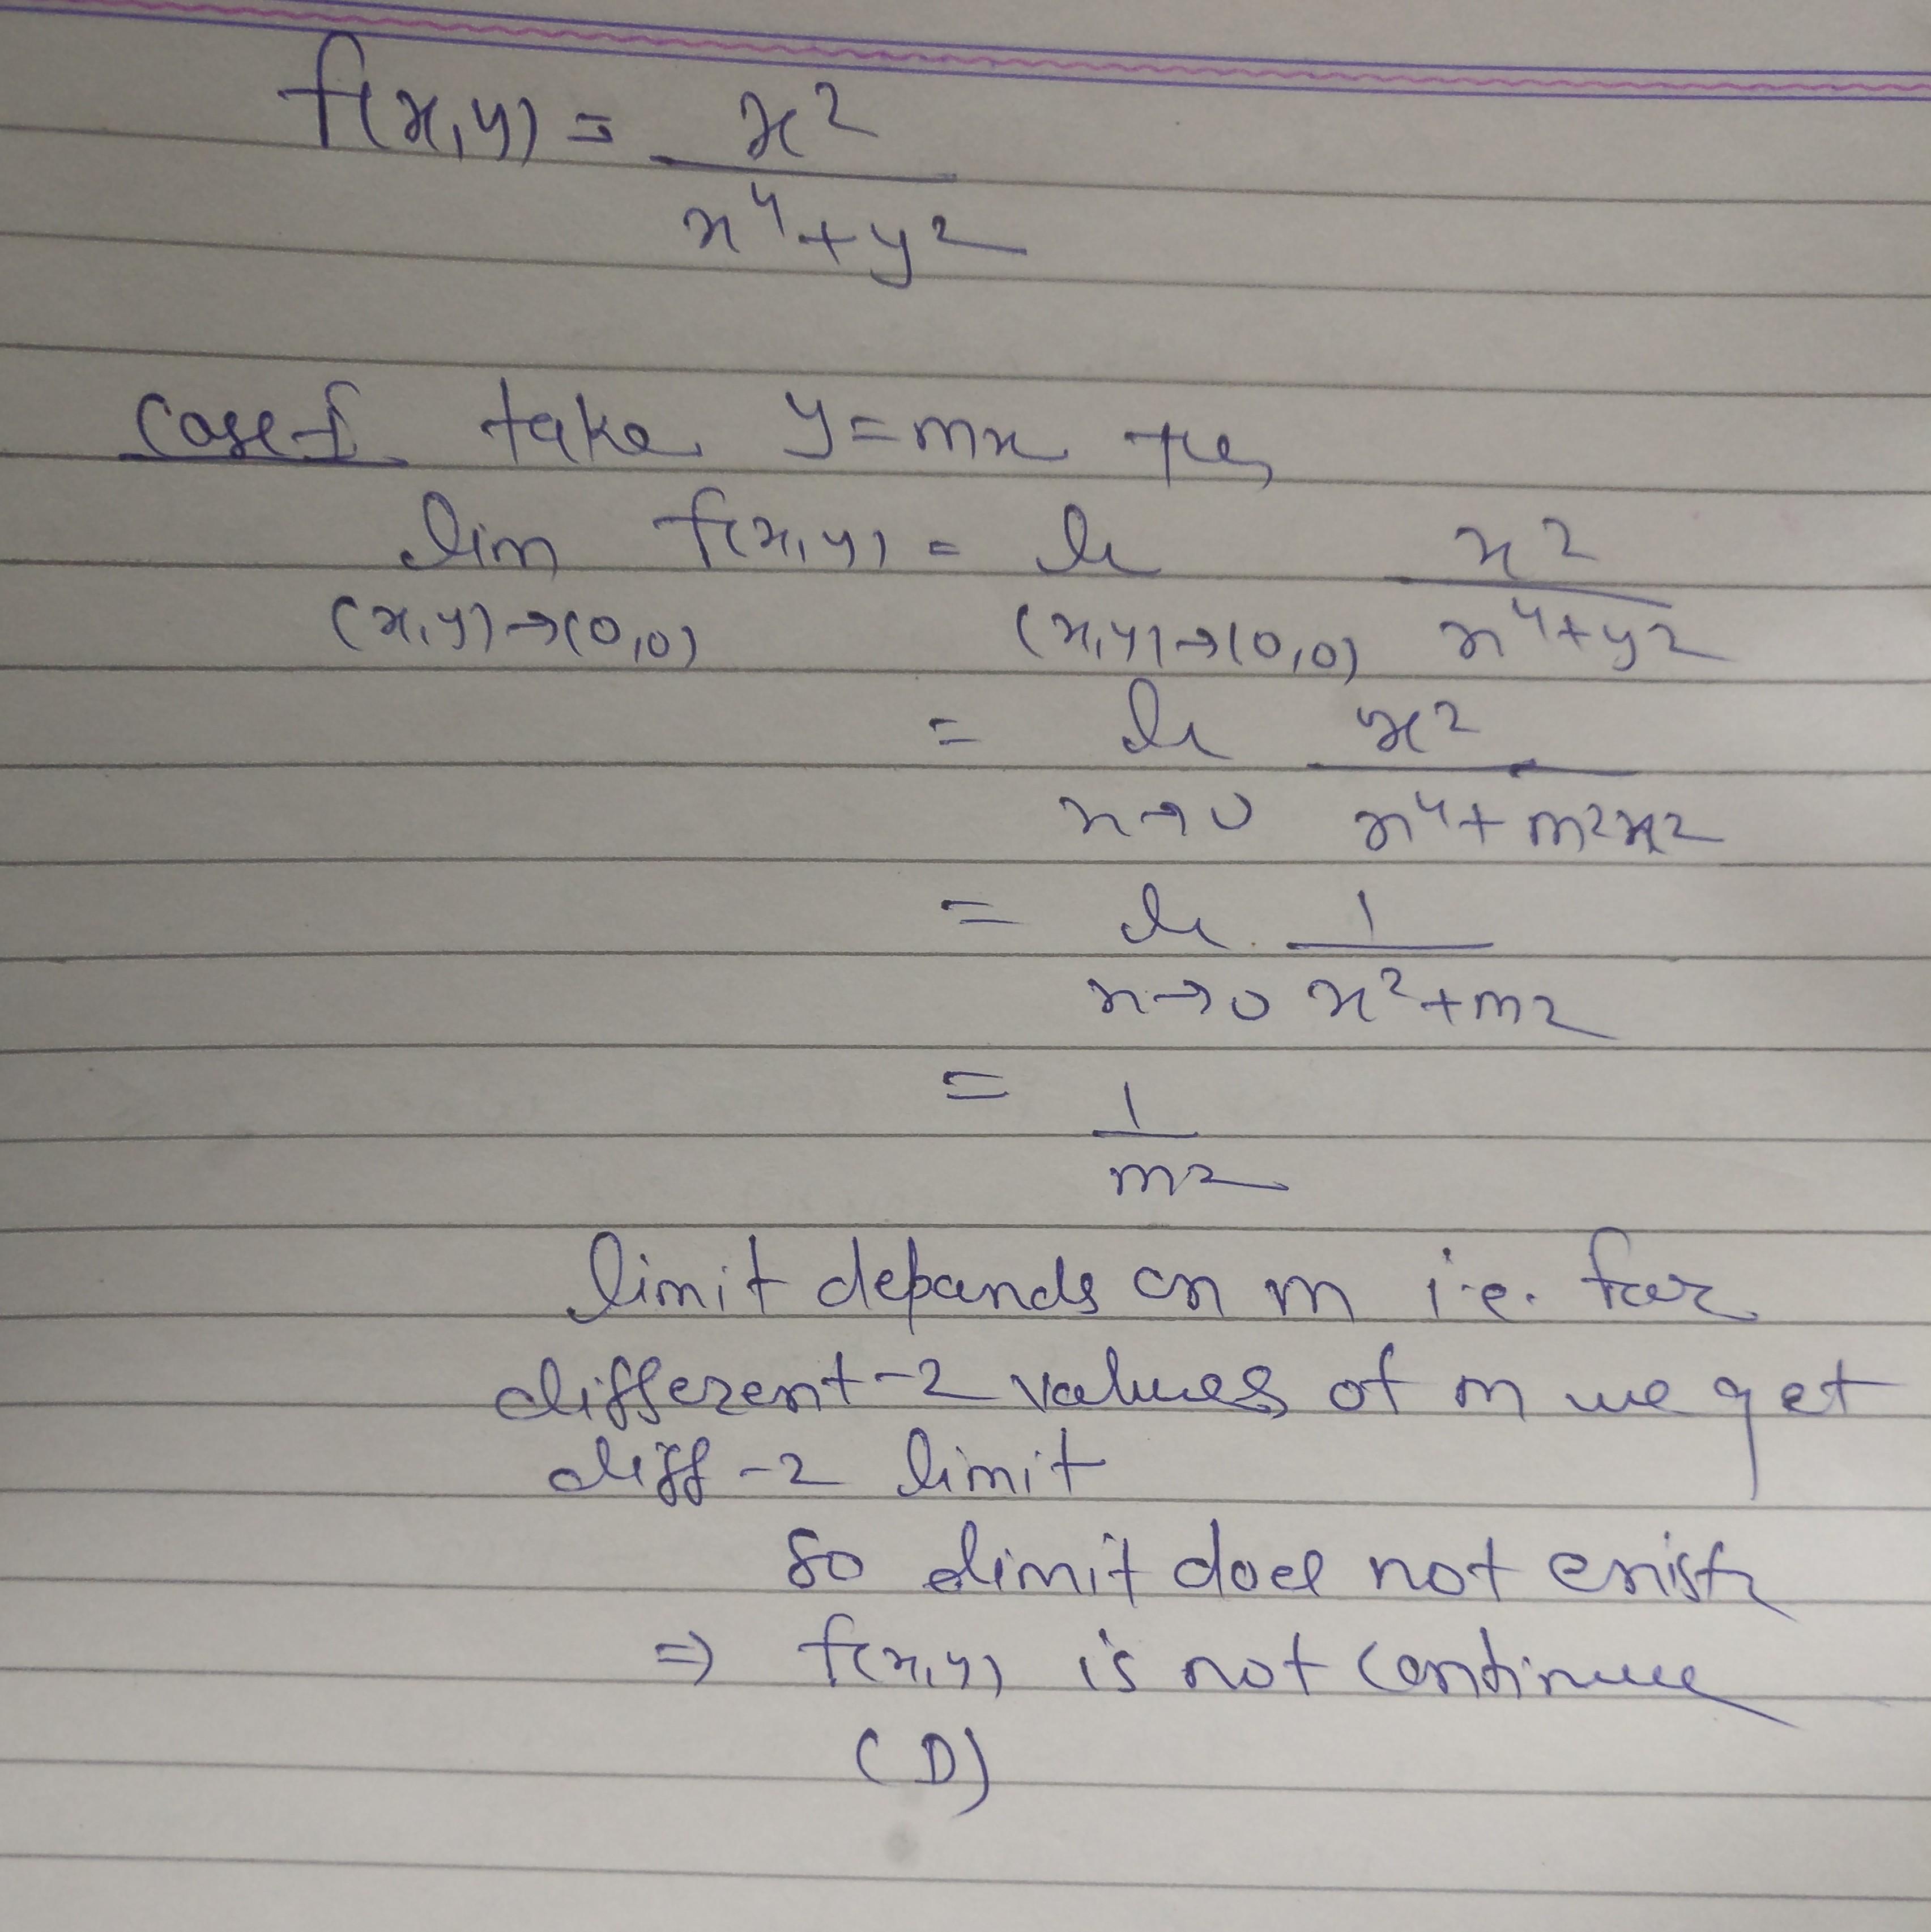 f(x,y) = x²
x⁴+y²
Case-I take y=mx the,
lim f(x,y) = li x²
(x,y)→(0,0) (x,y)→(0,0) x⁴+y²
= li x²
x→0 x⁴+m²x²
= li 1
x→0 x²+m²
= 1
m²
limit depends on m i.e. for
different-2 values of m we get
diff-2 limit
so limit does not exist
⇒ f(x,y) is not continue
(D)